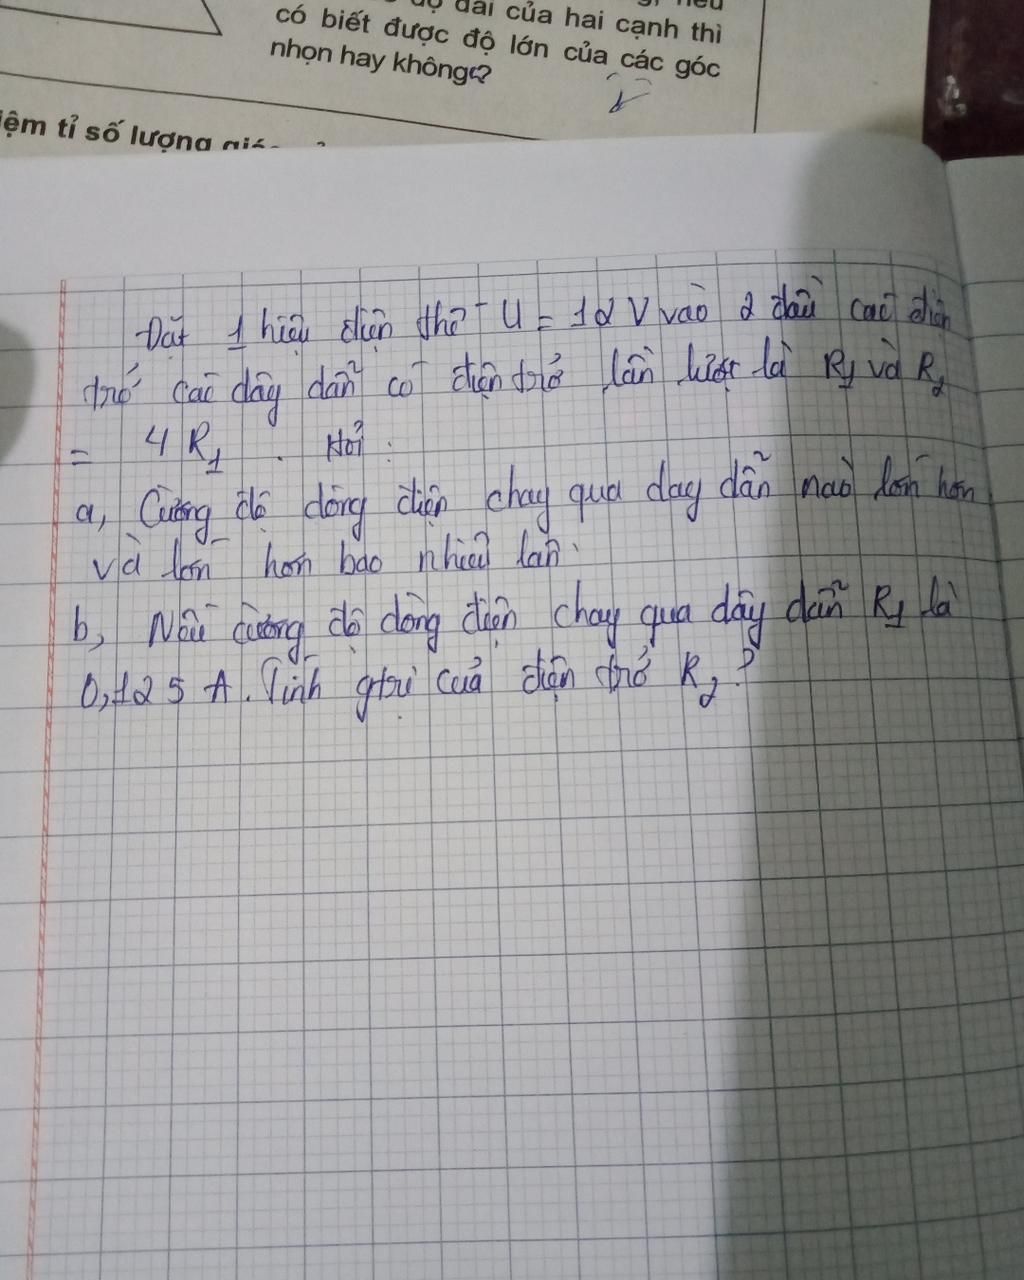 độ dài của hai cạnh thì
có biết được độ lớn của các góc
nhọn hay không?
iệm tỉ số lượng giá
Đặt 1 hiệu điện thế U = 12 V vào 2 đầu các điện
trở các dây dẫn có điện trở lần lượt là R1 và R2
= 4 R1 . Hỏi :
a, Cường độ dòng điện chạy qua dây dẫn nào lớn hơn
và lớn hơn bao nhiêu lần.
b, Nếu cường độ dòng điện chạy qua dây dẫn R1 là
0,125 A. Tính gtrị của điện trở R2?